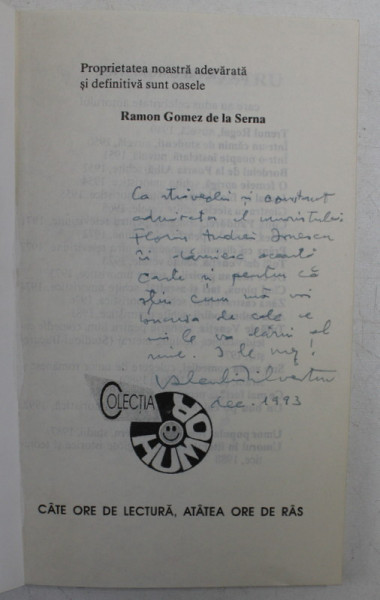 Proprietatea noastră adevărată
și definitivă sunt oasele
Ramon Gomez de la Serna
Ca străvechi și constant
admirator al umoristului
Florin Andrei Ionescu
îi dăruiesc această
carte și pentru că
știu cum mă voi
bucura de cele ce
mi le va dărui el
mie. I le rog!
Valentin Silvestru
dec. 1993
COLECȚIA
HUMOR
CÂTE ORE DE LECTURĂ, ATÂTEA ORE DE RÂS